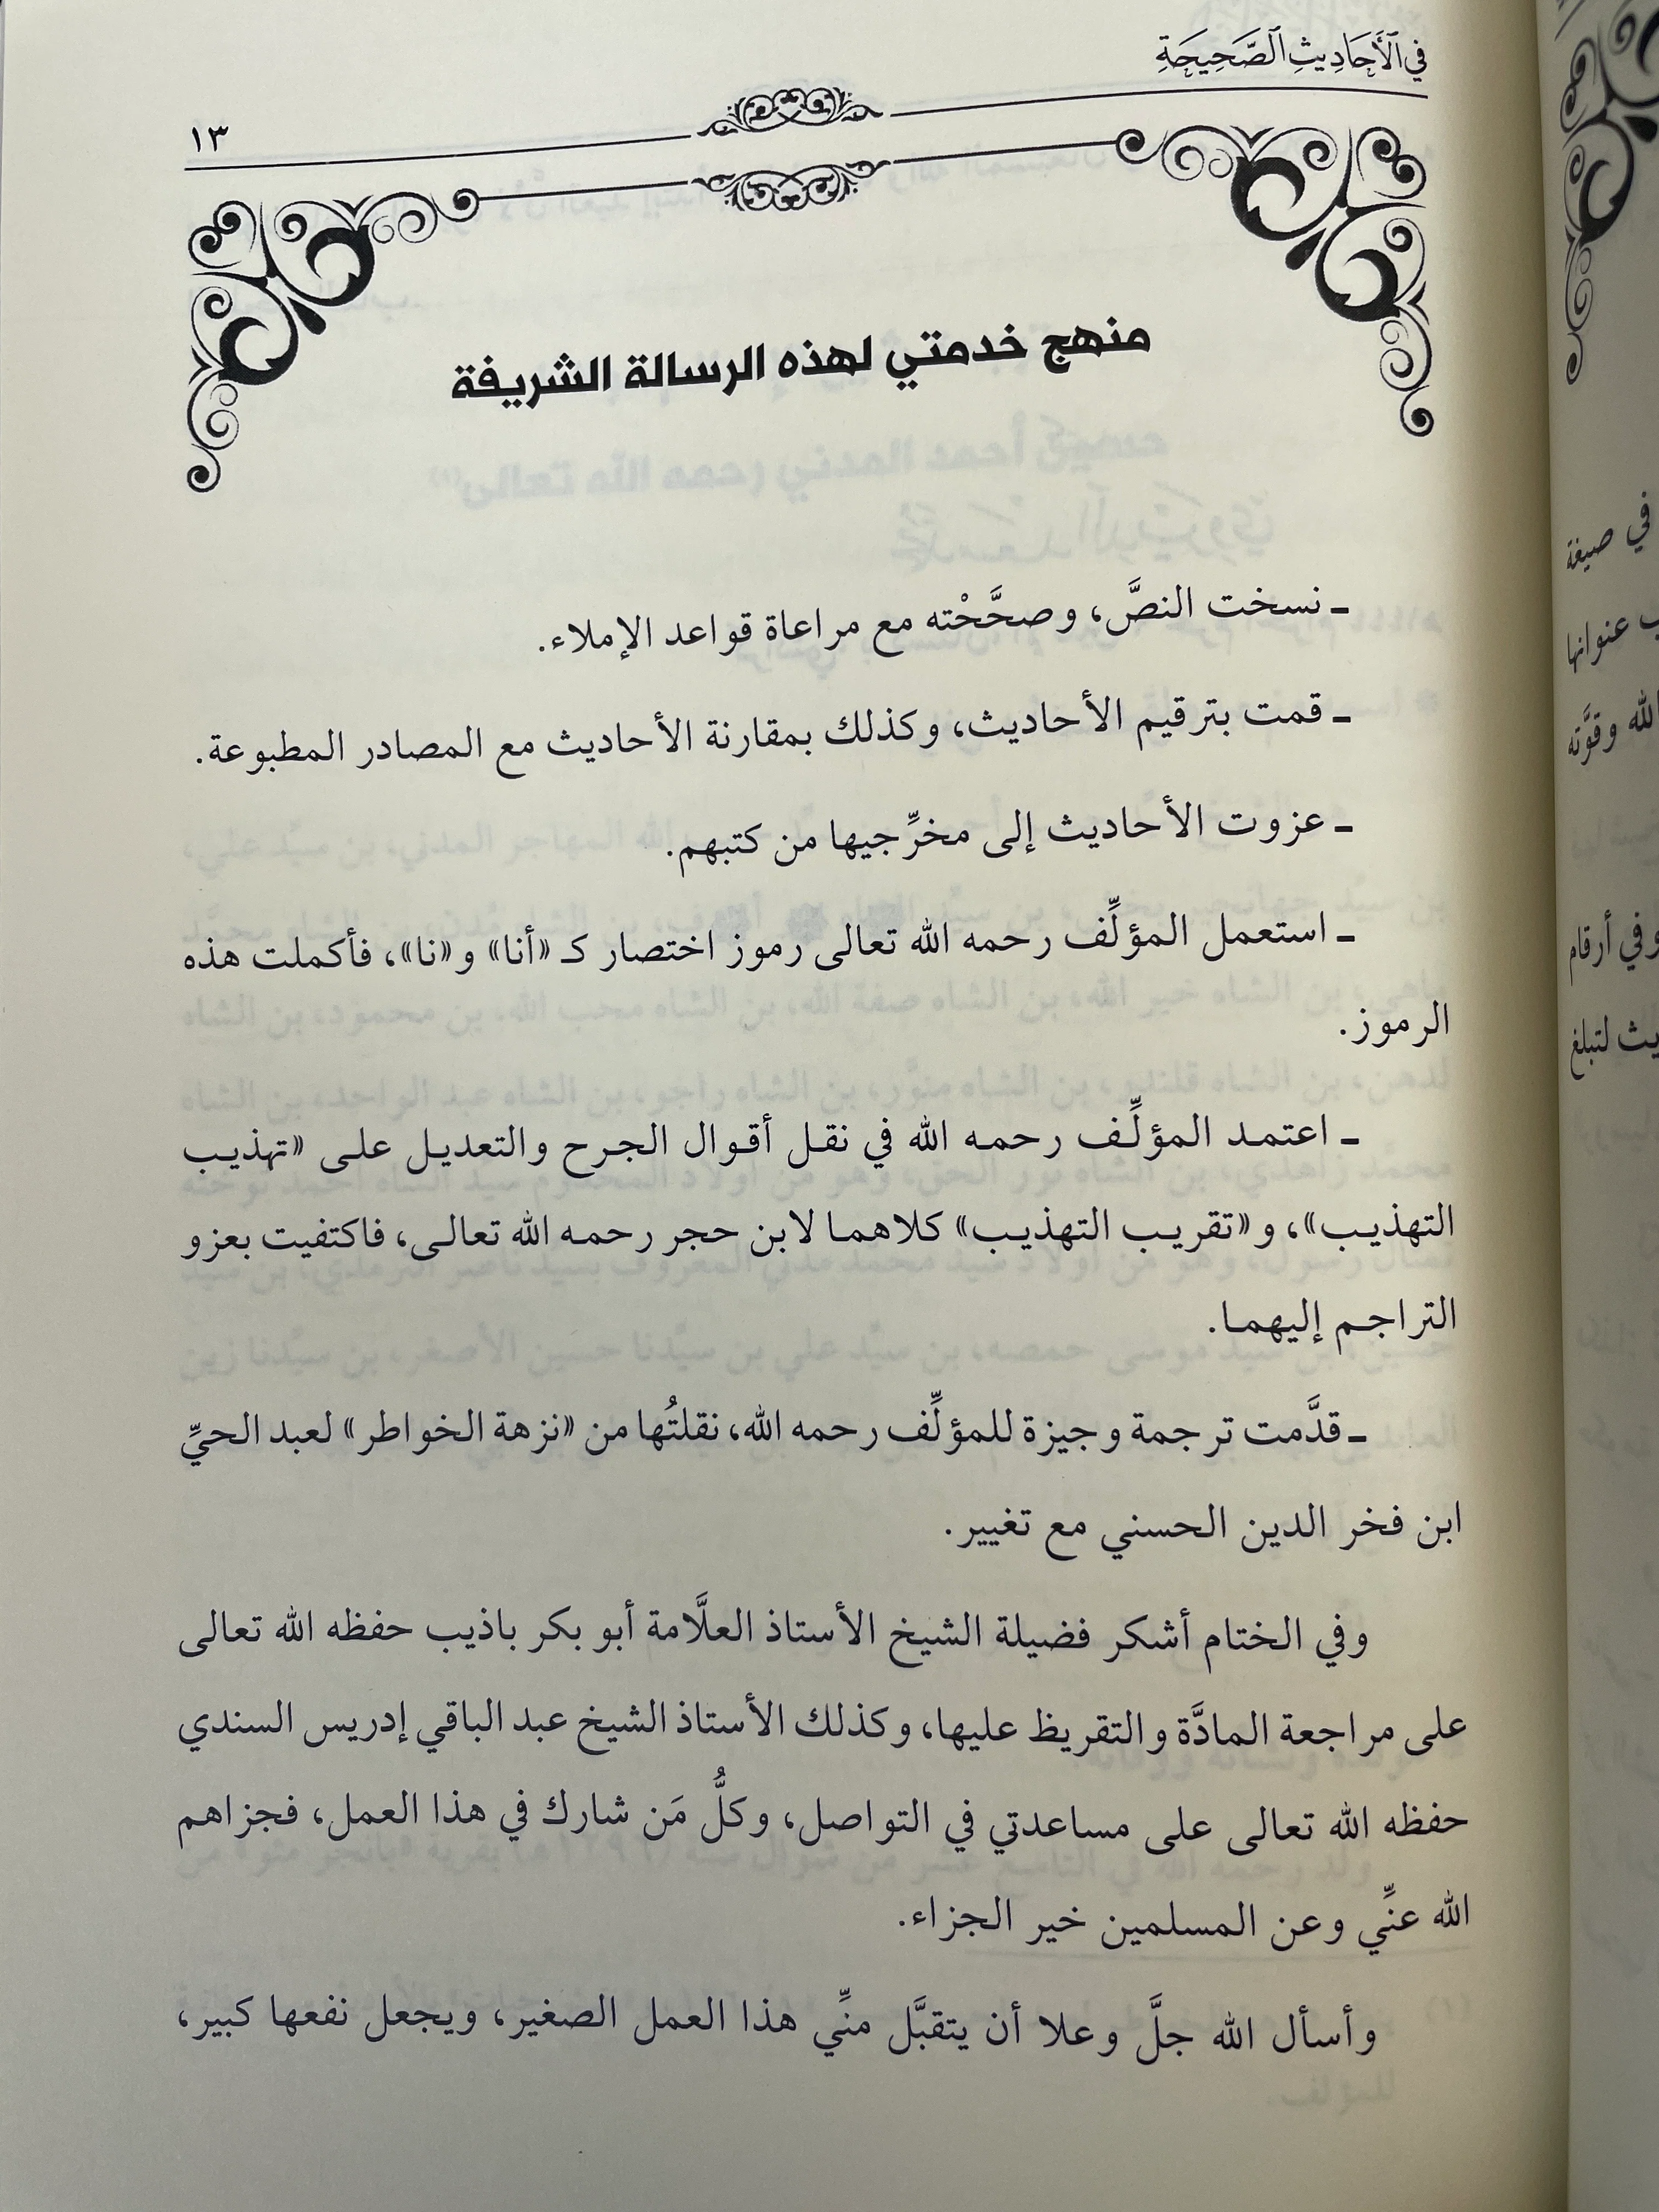 في الأَحَادِيثِ الصَّحِيحَةِ
١٣
منهج خدمتي لهذه الرسالة الشريفة
ـ نسخت النصَّ، وصحَّحْته مع مراعاة قواعد الإملاء.
ـ قمت بترقيم الأحاديث، وكذلك بمقارنة الأحاديث مع المصادر المطبوعة.
ـ عزوت الأحاديث إلى مخرِّجيها من كتبهم.
ـ استعمل المؤلِّف رحمه الله تعالى رموز اختصار كـ «أنا» و«نا»، فأكملت هذه
الرموز.
ـ اعتمد المؤلِّف رحمه الله في نقل أقوال الجرح والتعديل على «تهذيب
التهذيب»، و«تقريب التهذيب» كلاهما لابن حجر رحمه الله تعالى، فاكتفيت بعزو
التراجم إليهما.
ـ قدَّمت ترجمة وجيزة للمؤلِّف رحمه الله، نقلتُها من «نزهة الخواطر» لعبد الحيِّ
ابن فخر الدين الحسني مع تغيير.
وفي الختام أشكر فضيلة الشيخ الأستاذ العلَّامة أبو بكر باذيب حفظه الله تعالى
على مراجعة المادَّة والتقريظ عليها، وكذلك الأستاذ الشيخ عبد الباقي إدريس السندي
حفظه الله تعالى على مساعدتي في التواصل، وكلُّ مَن شارك في هذا العمل، فجزاهم
الله عنِّي وعن المسلمين خير الجزاء.
وأسأل الله جلَّ وعلا أن يتقبَّل منِّي هذا العمل الصغير، ويجعل نفعها كبير،
في صيغة
عنوانها
الله وقوَّته
وفي أرقام
لتبلغ